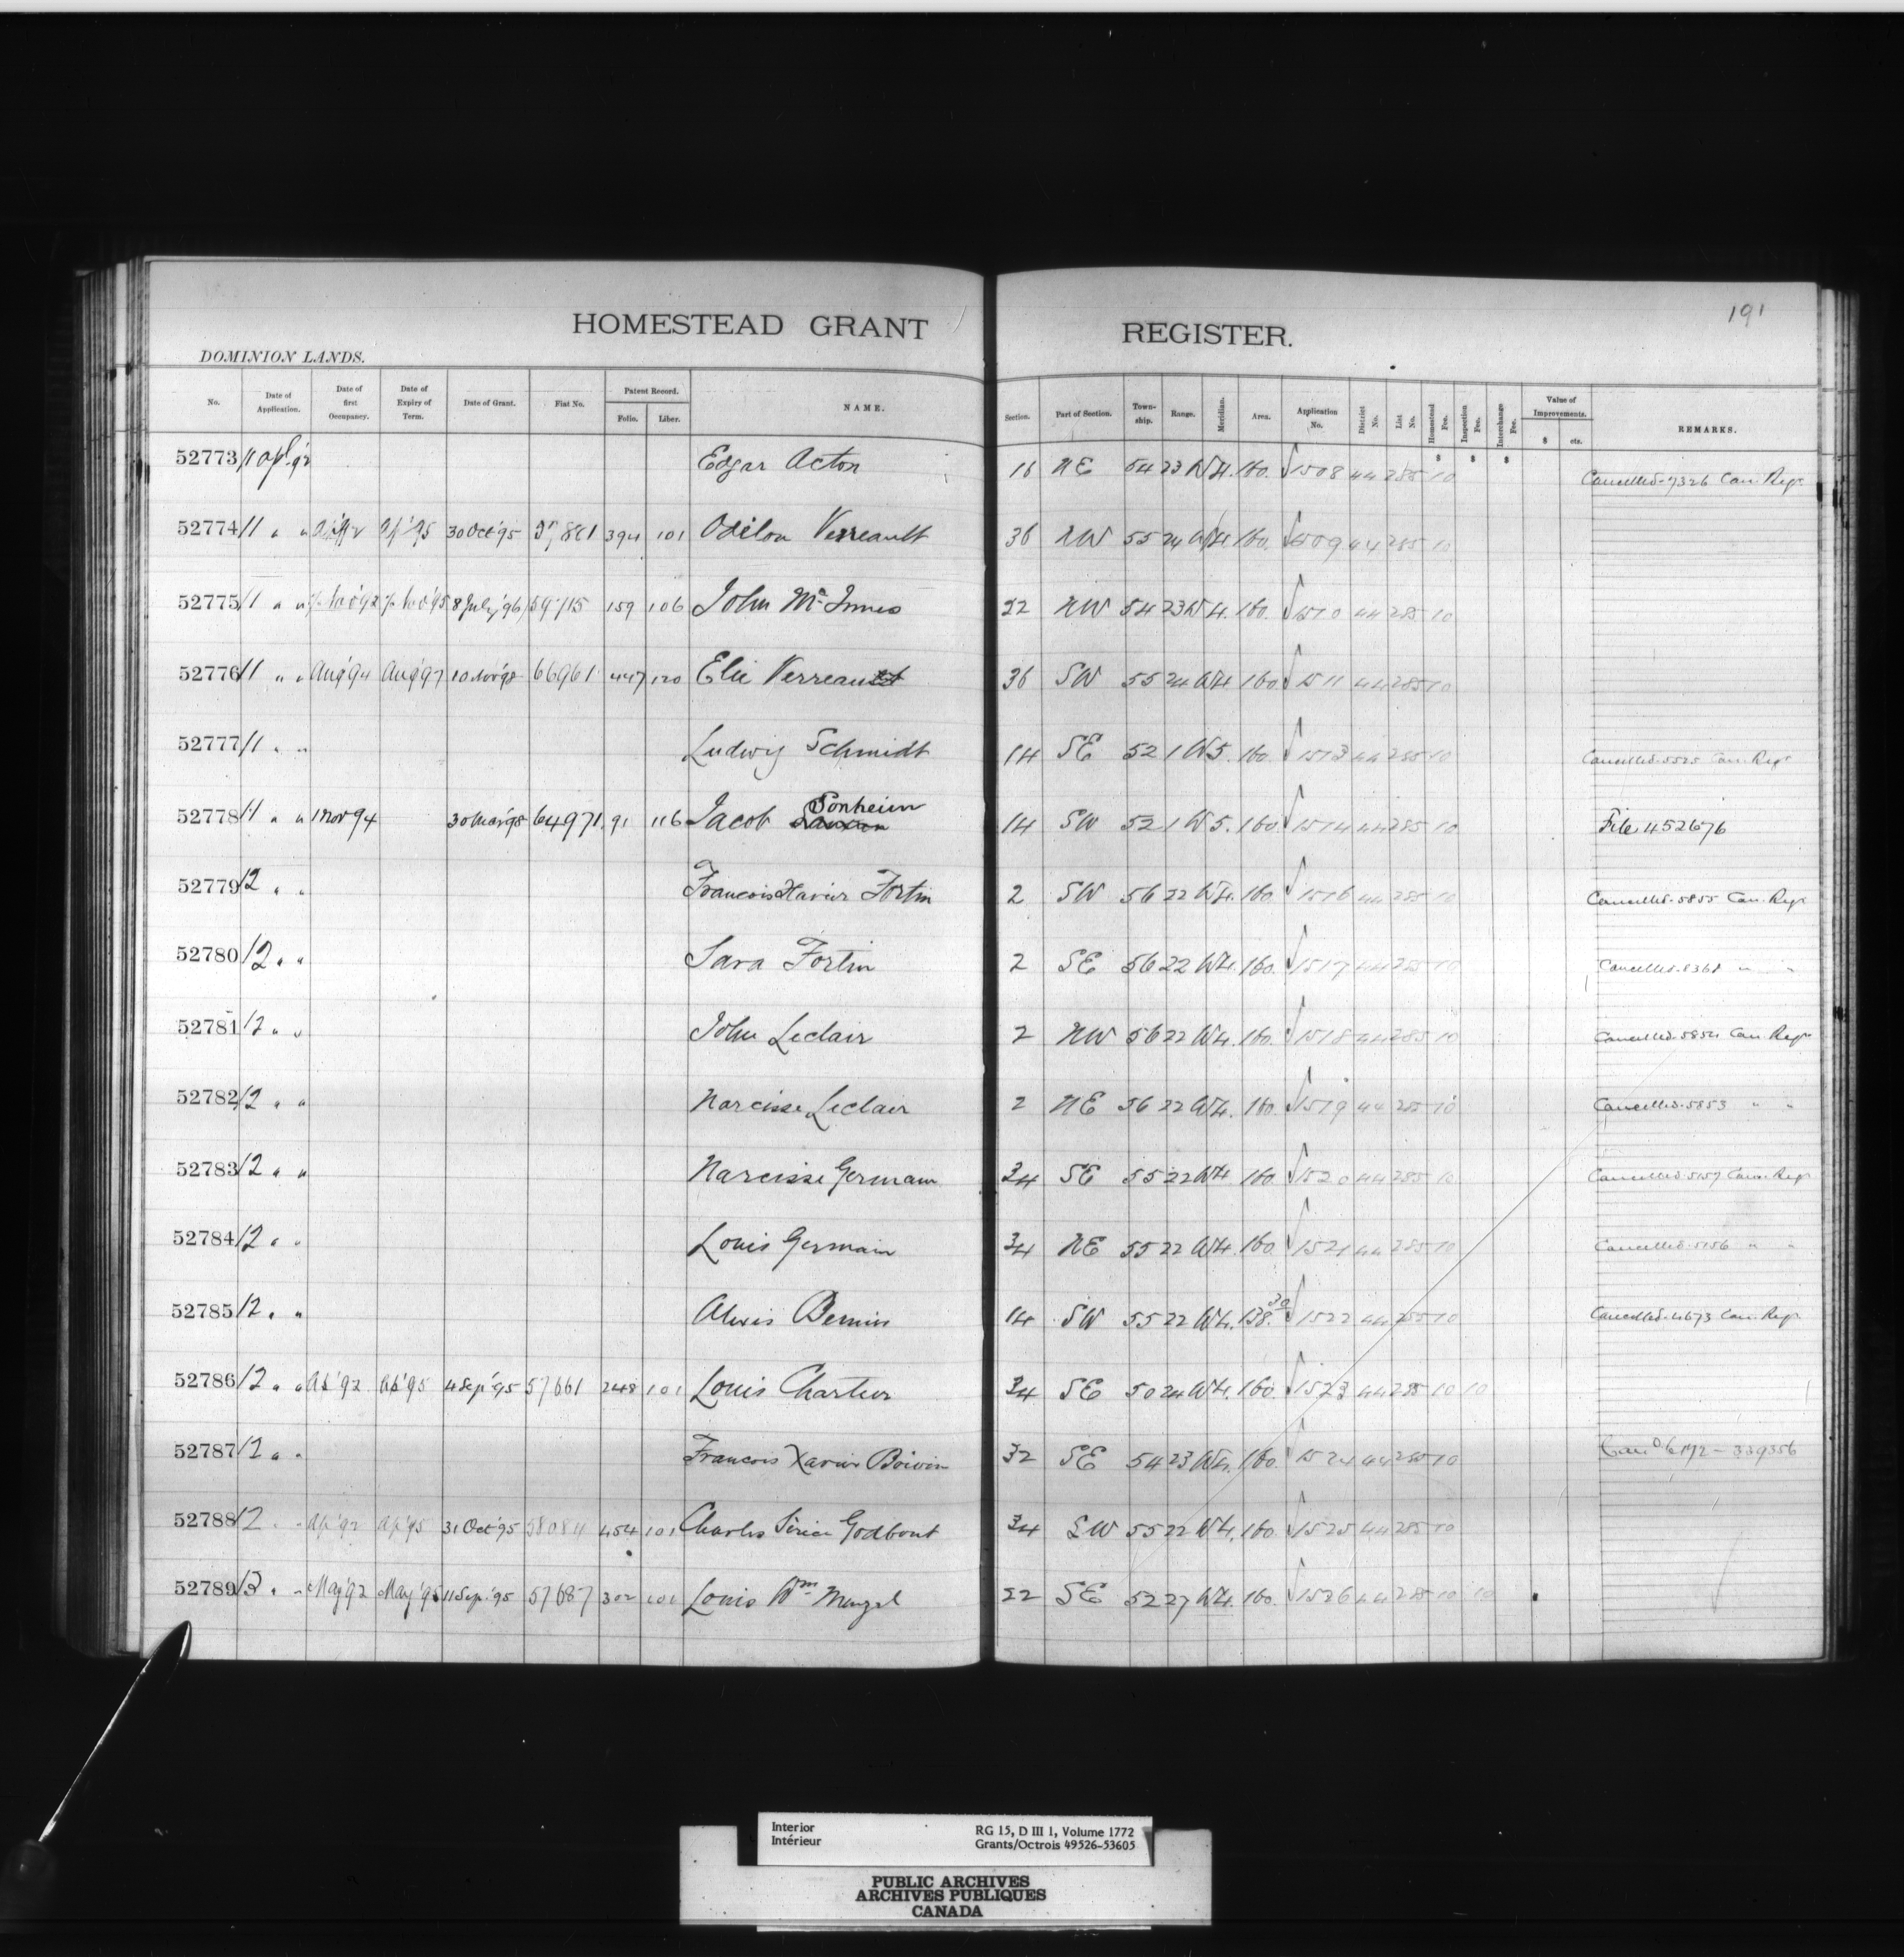 191
HOMESTEAD GRANT REGISTER.
DOMINION LANDS.
No. Date of Application. Date of first Occupancy. Date of Expiry of Term. Date of Grant. Fiat No. Patent Record. Folio. Liber. NAME. Section. Part of Section. Town-ship. Range. Meridian. Area. Application No. District No. List No. Homestead Fee. Inspection Fee. Interchange Fee. Value of Improvements. $ cts. REMARKS.
$ $ $
52773 11 Apl. 92 Edgar Acton 16 NE 54 23 W4. 160. 1508 44 285 10 Cancelled. 7326 Can. Regr
52774 11 " " Ap '95 30 Oct '95 394 101 Odilon Verreault 36 NW 55 24 W4. 160. 1509 44 285 10
52775 11 " " 8 July '96 59715 159 106 John Mc Innes 22 NW 54 23 W4. 160. 1510 44 285 10
52776 11 " " Aug '94 Aug '97 10 Nov '98 66961 447 120 Elie Verreault 36 SW 55 24 W4 160 1511 44 285 10
52777 11 " " Ludwig Schmidt 14 SE 52 1 W5. 160. 1513 44 285 10 Cancelled. 5525 Can. Regr
52778 11 " " 1 Nov 94 30 Mar '98 64971 91 116 Jacob Sonheim 14 SW 52 1 W5. 160. 1514 44 285 10 File 452676
52779 12 " " Francois Xavier Fortin 2 SW 56 22 W4. 160. 1516 44 285 10 Cancelled. 5855 Can. Regr
52780 12 " " Sara Fortin 2 SE 56 22 W4. 160. 1517 44 285 10 Cancelled. 8368 " "
52781 12 " " John Leclair 2 NW 56 22 W4. 160. 1518 44 285 10 Cancelled. 5854 Can Regr
52782 12 " " Narcisse Leclair 2 NE 56 22 W4. 160. 1519 44 285 10 Cancelled. 5853 " "
52783 12 " " Narcisse Germain 34 SE 55 22 W4 160. 1520 44 285 10 Cancelled. 5157 Can. Regr
52784 12 " " Louis Germain 34 NE 55 22 W4. 160. 1521 44 285 10 Cancelled. 5156 " "
52785 12 " " Alexis Bernin 14 SW 55 22 W4. 138.30 1522 44 285 10 Cancelled. 4673 Can. Regr
52786 12 " " Ap '92 Ap '95 4 Sep '95 57661 248 101 Louis Chartier 34 SE 50 24 W4. 160. 1523 44 285 10 10
52787 12 " " Francois Xavier Boivin 32 SE 54 23 W4. 160. 1524 44 285 10 339356
52788 12 " " Ap '92 Ap '95 31 Oct '95 58084 454 101 Charles Godbout 34 SW 55 22 W4. 160. 1525 44 285 10
52789 13 " " May '92 May '95 11 Sep. '95 57687 302 101 Louis Wm Mengel 22 SE 52 27 W4. 160. 1526 44 285 10 10
Interior
Intérieur
RG 15, D III 1, Volume 1772
Grants/Octrois 49526-53605
PUBLIC ARCHIVES
ARCHIVES PUBLIQUES
CANADA